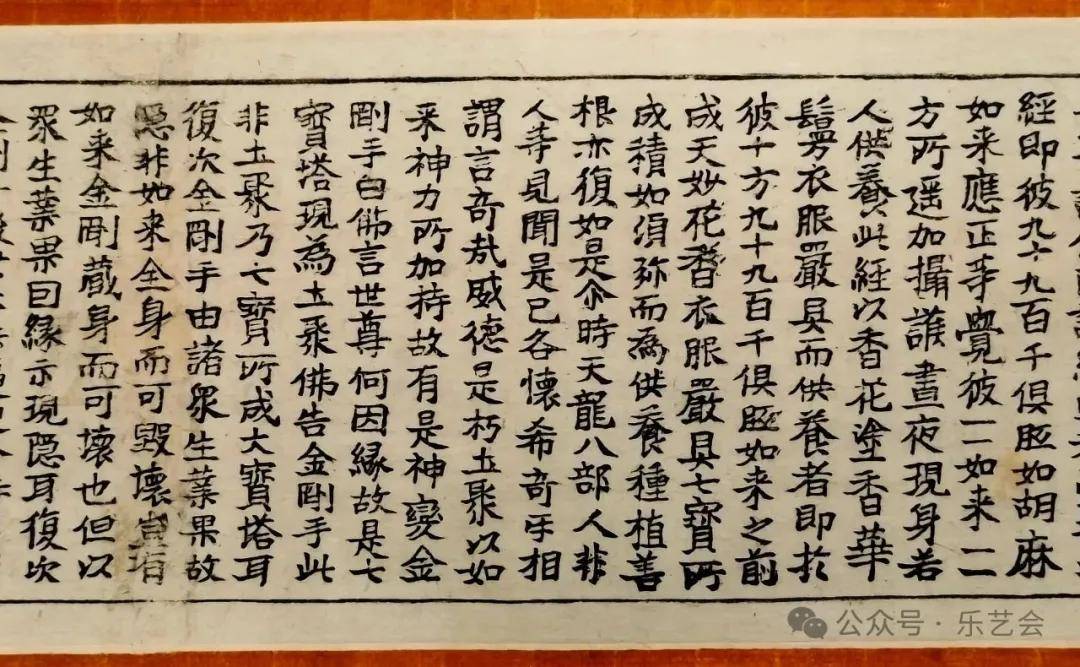 經即彼九十九百千俱胝如胡麻
如来應正等覺彼一一如来一一
方所遥加攝護晝夜現身若
人供養此經以香花塗香華
鬘衣服嚴具而供養者即於
彼十方九十九百千俱胝如来之前
成天妙花香衣服嚴具七寶所
成積如須弥而為供養種植善
根亦復如是尒時天龍八部人非
人等見聞是已各懷希奇牙相
謂言奇哉威德是朽土聚以如
来神力所加持故有是神變金
剛手白佛言世尊何因緣故是七
寶塔現為土聚佛告金剛手此
非土聚乃七寶所成大寶塔耳
復次金剛手由諸眾生業果故
隱非如来全身而可毀壞豈有
如来金剛藏身而可壞也但以
眾生業果因緣示現隱耳復次
公众号·乐艺会